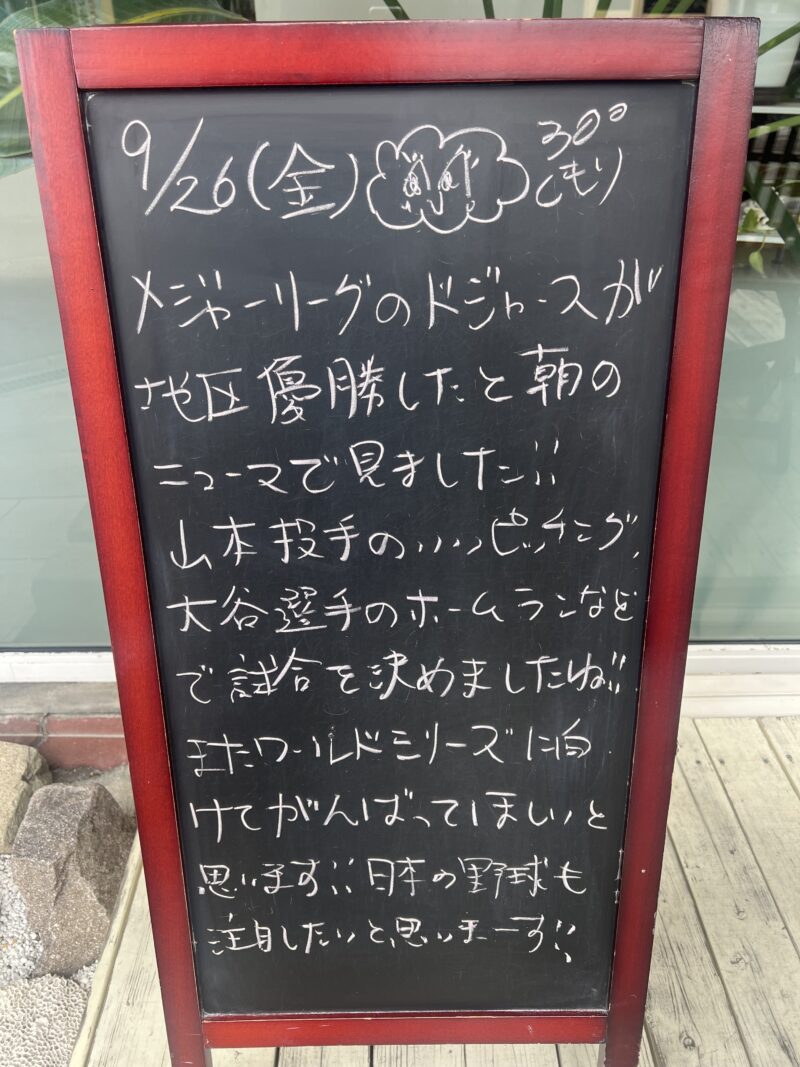 9/26(金) 30°
くもり
メジャーリーグのドジャースが
地区優勝したと朝の
ニュースで見ました!!
山本投手のいいピッチング、
大谷選手のホームランなど
で試合を決めましたね!!
またワールドシリーズに向
けてがんばってほしいと
思います!!日本の野球も
注目したいと思いまーす!!